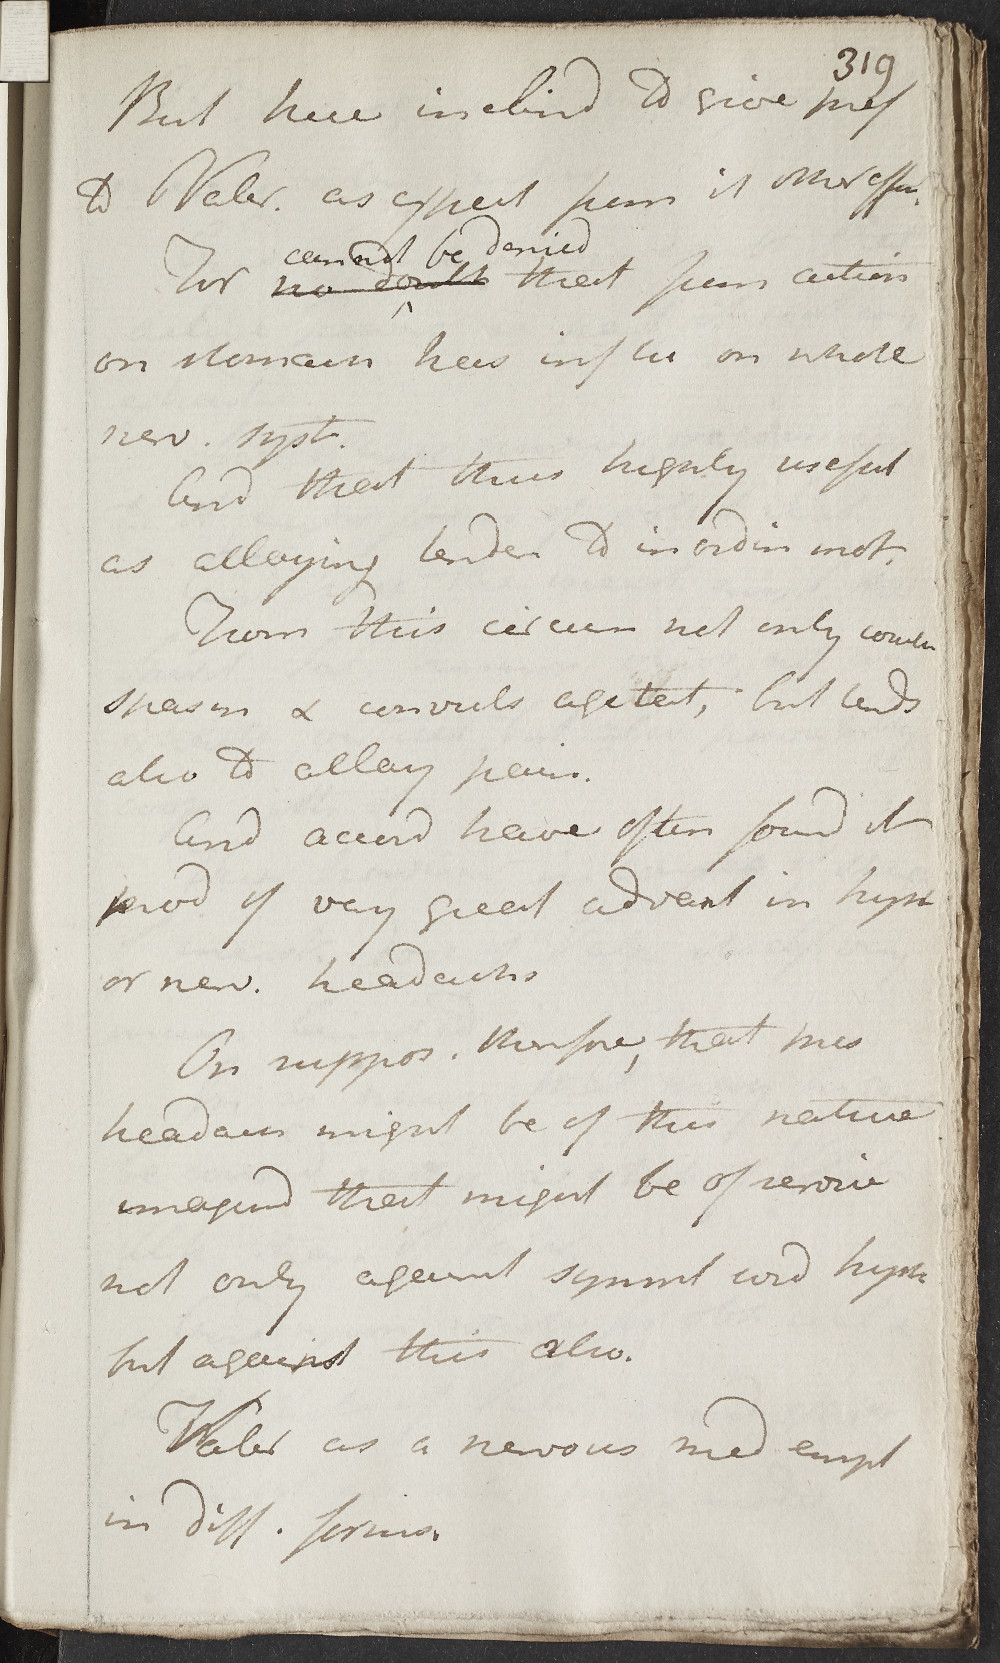 319
But here inclind to give pref
to Valer. as expect from it other effec.
cannot be denied
For no doubt that from action
on stomach has influ on whole
nerv. syst.
And that thus highly useful
as allaying tenden to inordin mot.
From this circum not only counter
spasm & convuls agitat, but tends
also to allay pain.
And accord have often found it
prod of very great advant in hyst
or nerv. headachs
On suppos. therefore, that this
headach might be of this nature
imagind that might be of service
not only against sympt cord hyst
but against this also.
Valer as a nervous med empl
in diff. forms.